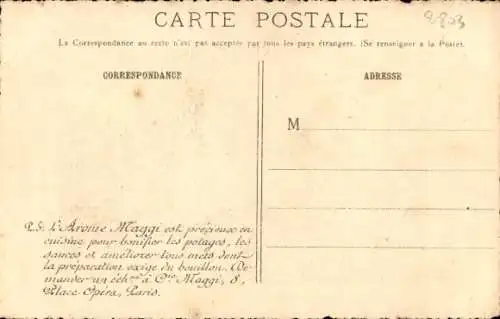 CARTE POSTALE
La Correspondance au recto n'est pas acceptée par tous les pays étrangers. (Se renseigner à la Poste).
CORRESPONDANCE
ADRESSE
M
P.S. L'Arome Maggi est précieux en
cuisine pour bonifier les potages, les
sauces et améliorer tous mets dont
la préparation exige du bouillon. (De-
mander un éch.on à Cie Maggi, 8,
Place Opéra, Paris.